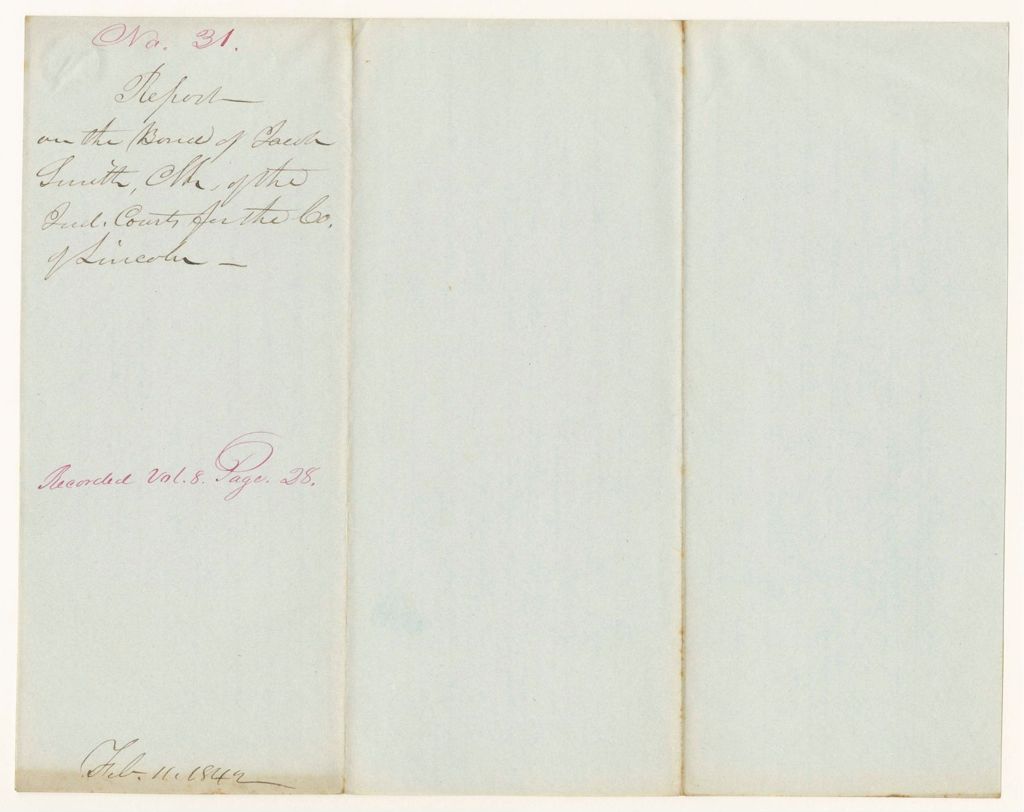 No. 31.
Report
on the Bond of Jacob
Smith, Clk. of the
Jud. Courts for the Co.
of Lincoln
Recorded Vol. 8. Page. 28.
Feb. 11. 1842